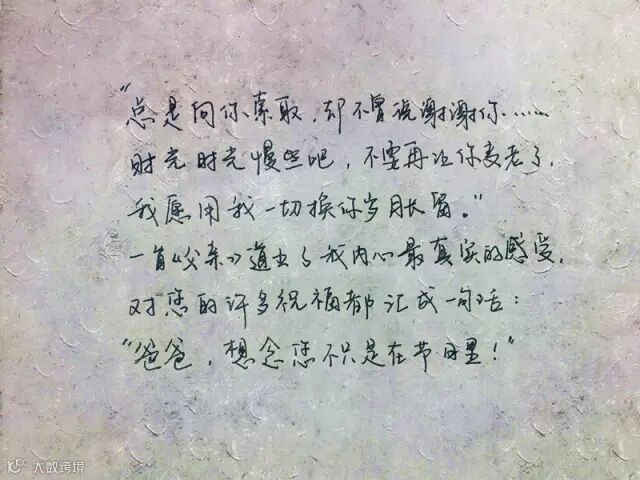 “总是向你索取，却不曾说谢谢你……
时光时光慢些吧，不要再让你变老了，
我愿用我一切换你岁月长留。”
一首《父亲》道出了我内心最真实的感受，
对您的许多祝福都汇成一句话：
“爸爸，想念您不只是在节日里！”
大数跨境